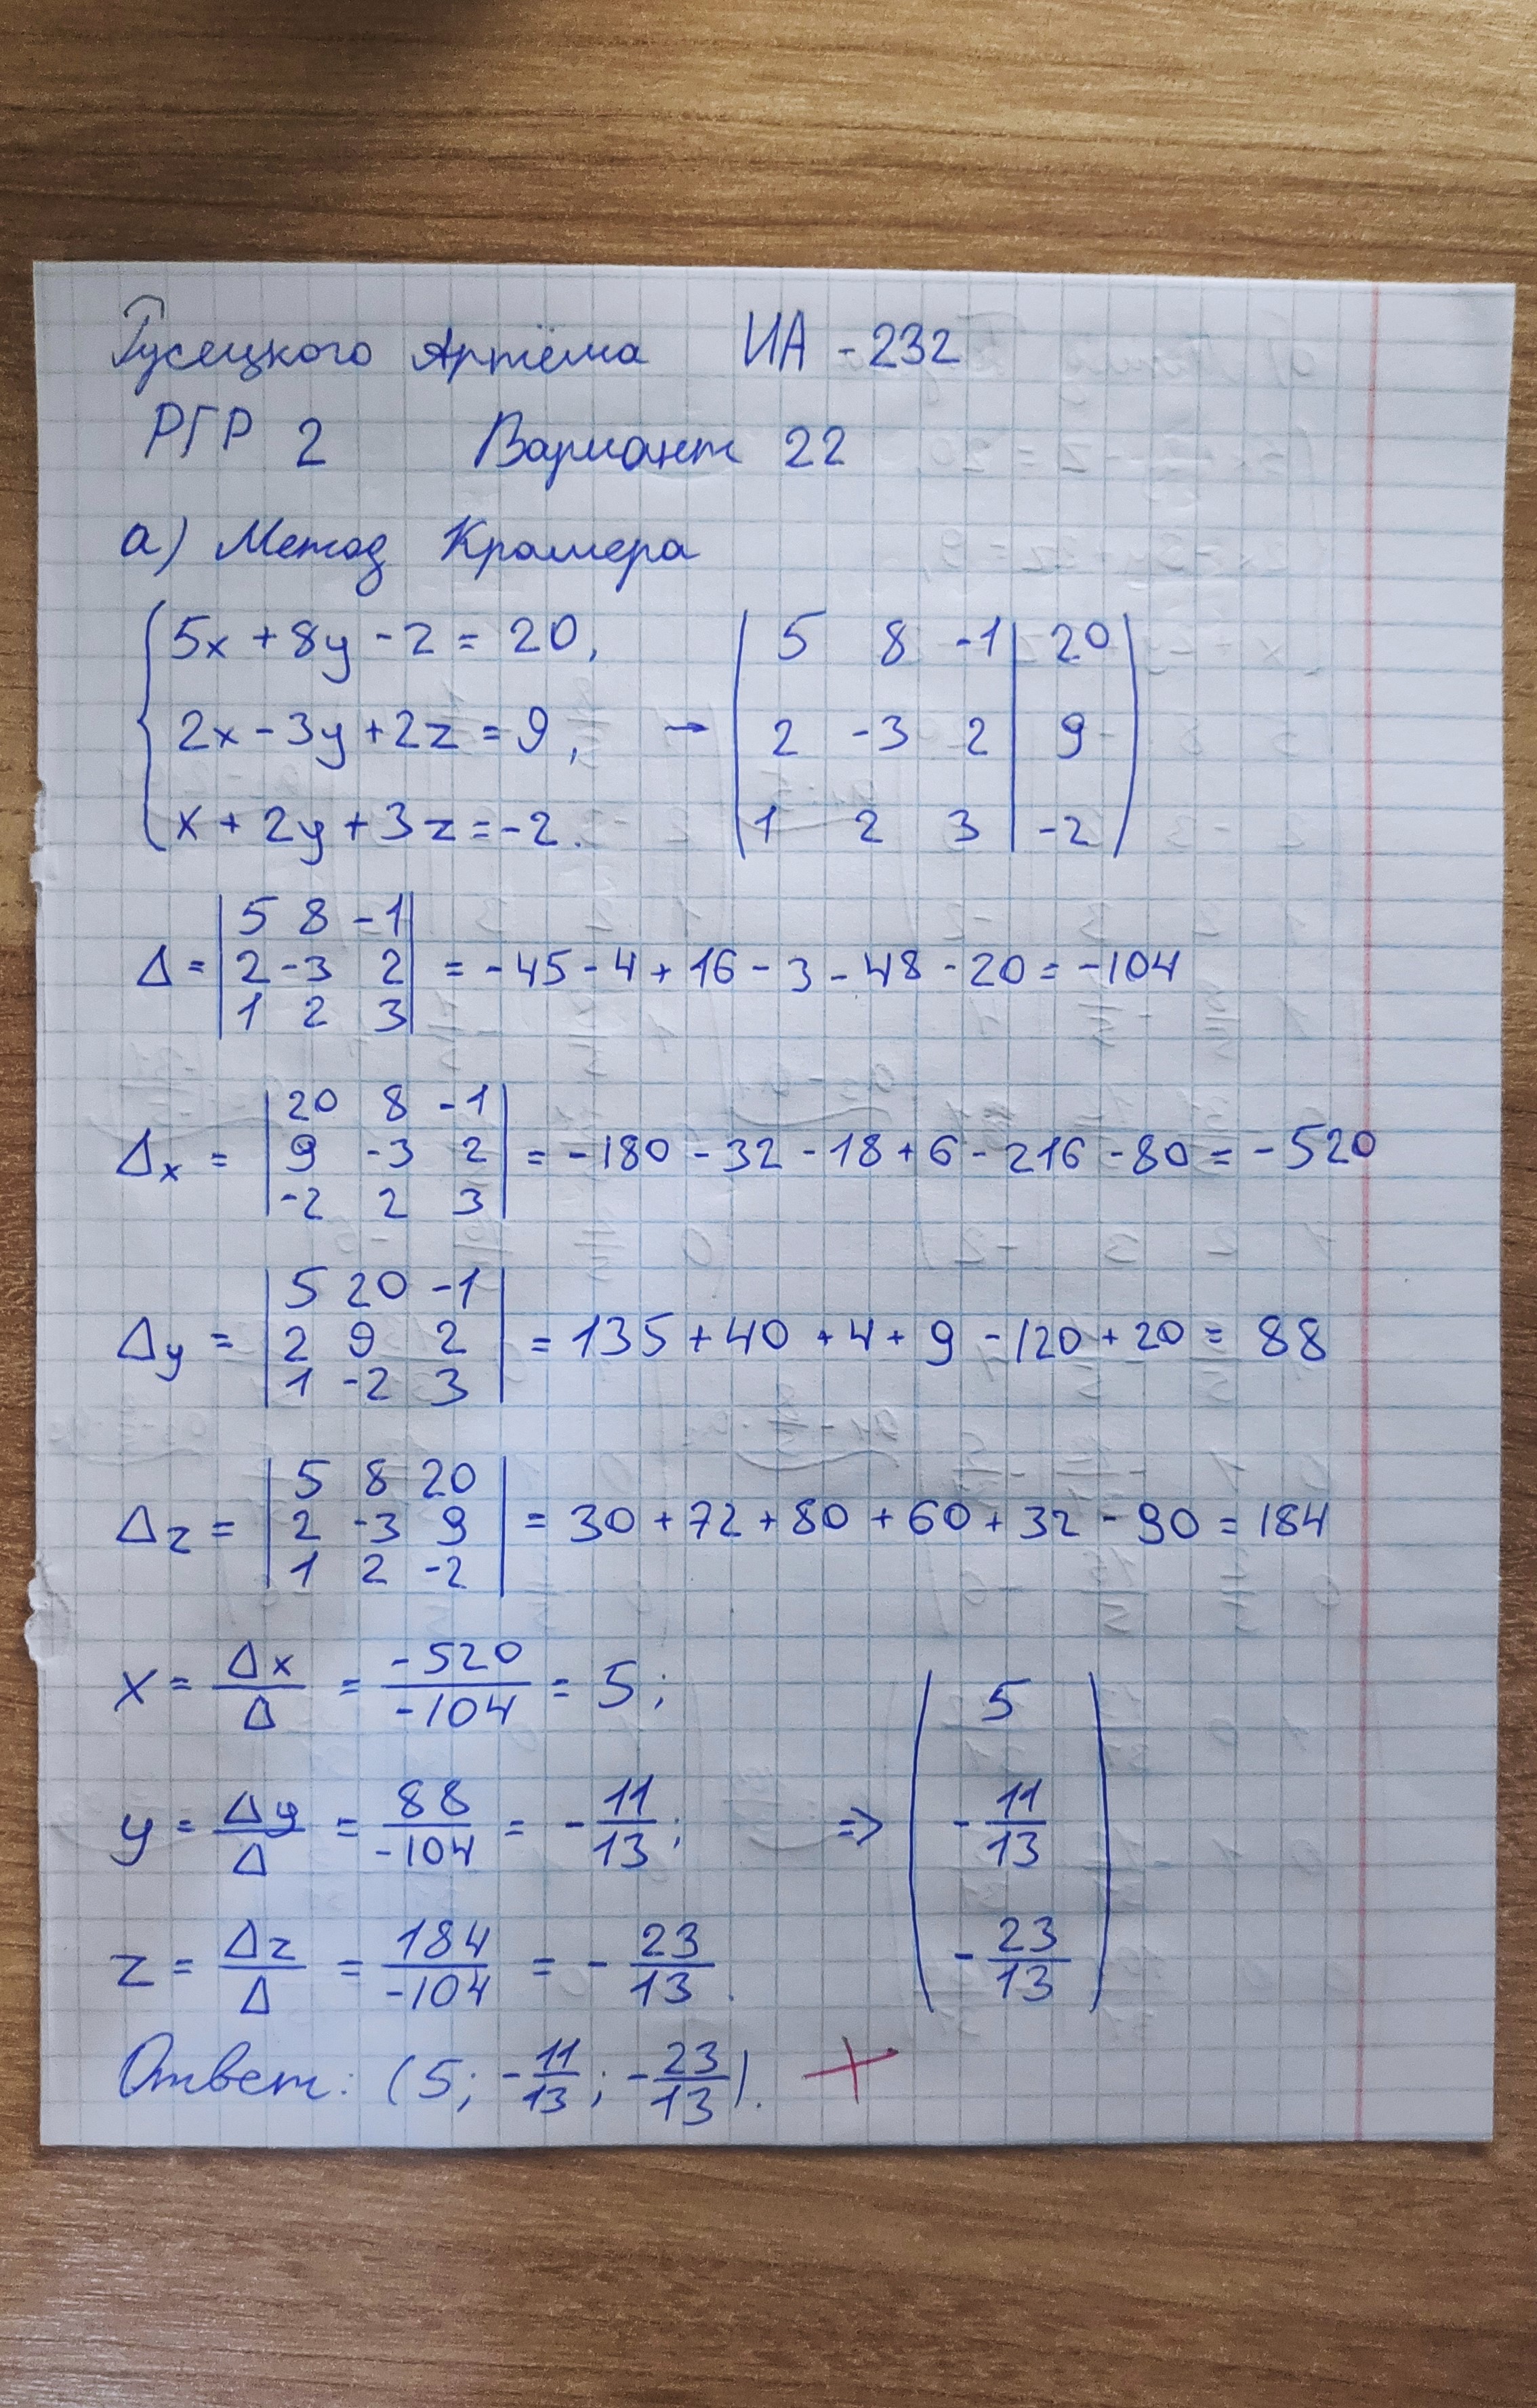 Гусецкого Артёма ИА - 232
РГР 2 Вариант 22
а) Метод Крамера
{ 5x + 8y - z = 20, 2x - 3y + 2z = 9, x + 2y + 3z = -2. → ( 5 8 -1 | 20 )
( 2 -3 2 | 9 )
( 1 2 3 | -2 )
Δ = | 5 8 -1 |
| 2 -3 2 | = -45 - 4 + 16 - 3 - 48 - 20 = -104
| 1 2 3 |
Δx = | 20 8 -1 |
| 9 -3 2 | = -180 - 32 - 18 + 6 - 216 - 80 = -520
| -2 2 3 |
Δy = | 5 20 -1 |
| 2 9 2 | = 135 + 40 + 4 + 9 - 120 + 20 = 88
| 1 -2 3 |
Δz = | 5 8 20 |
| 2 -3 9 | = 30 + 72 + 80 + 60 + 32 - 90 = 184
| 1 2 -2 |
x = Δx/Δ = -520/-104 = 5;
y = Δy/Δ = 88/-104 = -11/13; => ( 5 -11/13 -23/13 )
z = Δz/Δ = 184/-104 = -23/13.
Ответ: (5; -11/13; -23/13). +